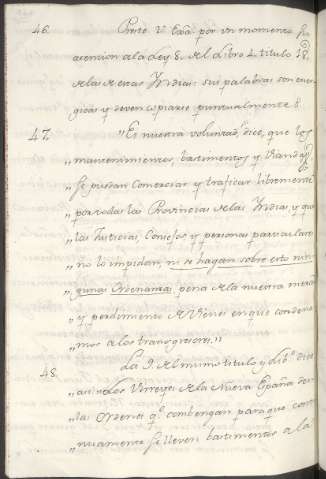 46. Preste V. Exâ. por un momento su
atencion a la Ley 8. del Libro 4. titulo 18.
de las de estas Yndias: sus palabras son ener-
gicas y deven copiarse puntualmente
47. "Es nuestra voluntad, dice, que los
"mantenimientos, bastimentos y viandas
"se puedan comerciar y traficar libremente
"por todas las Provincias de las Yndias, y que
"las Justicias, Consejos y personas particulares
"no lo impidan, ni se hagan sobre esto nin-
"gunas Ordenanzas pena de la nuestra merced
"y perdimiento de Vienes en que condena-
"mos a los transgresores."
48. La 9. del mismo titulo y Libº. dice
asi: Los Virreyes de la Nueva España den
las Ordenes qº. combengan para que conti-
nuamente se lleven bastimentos a la